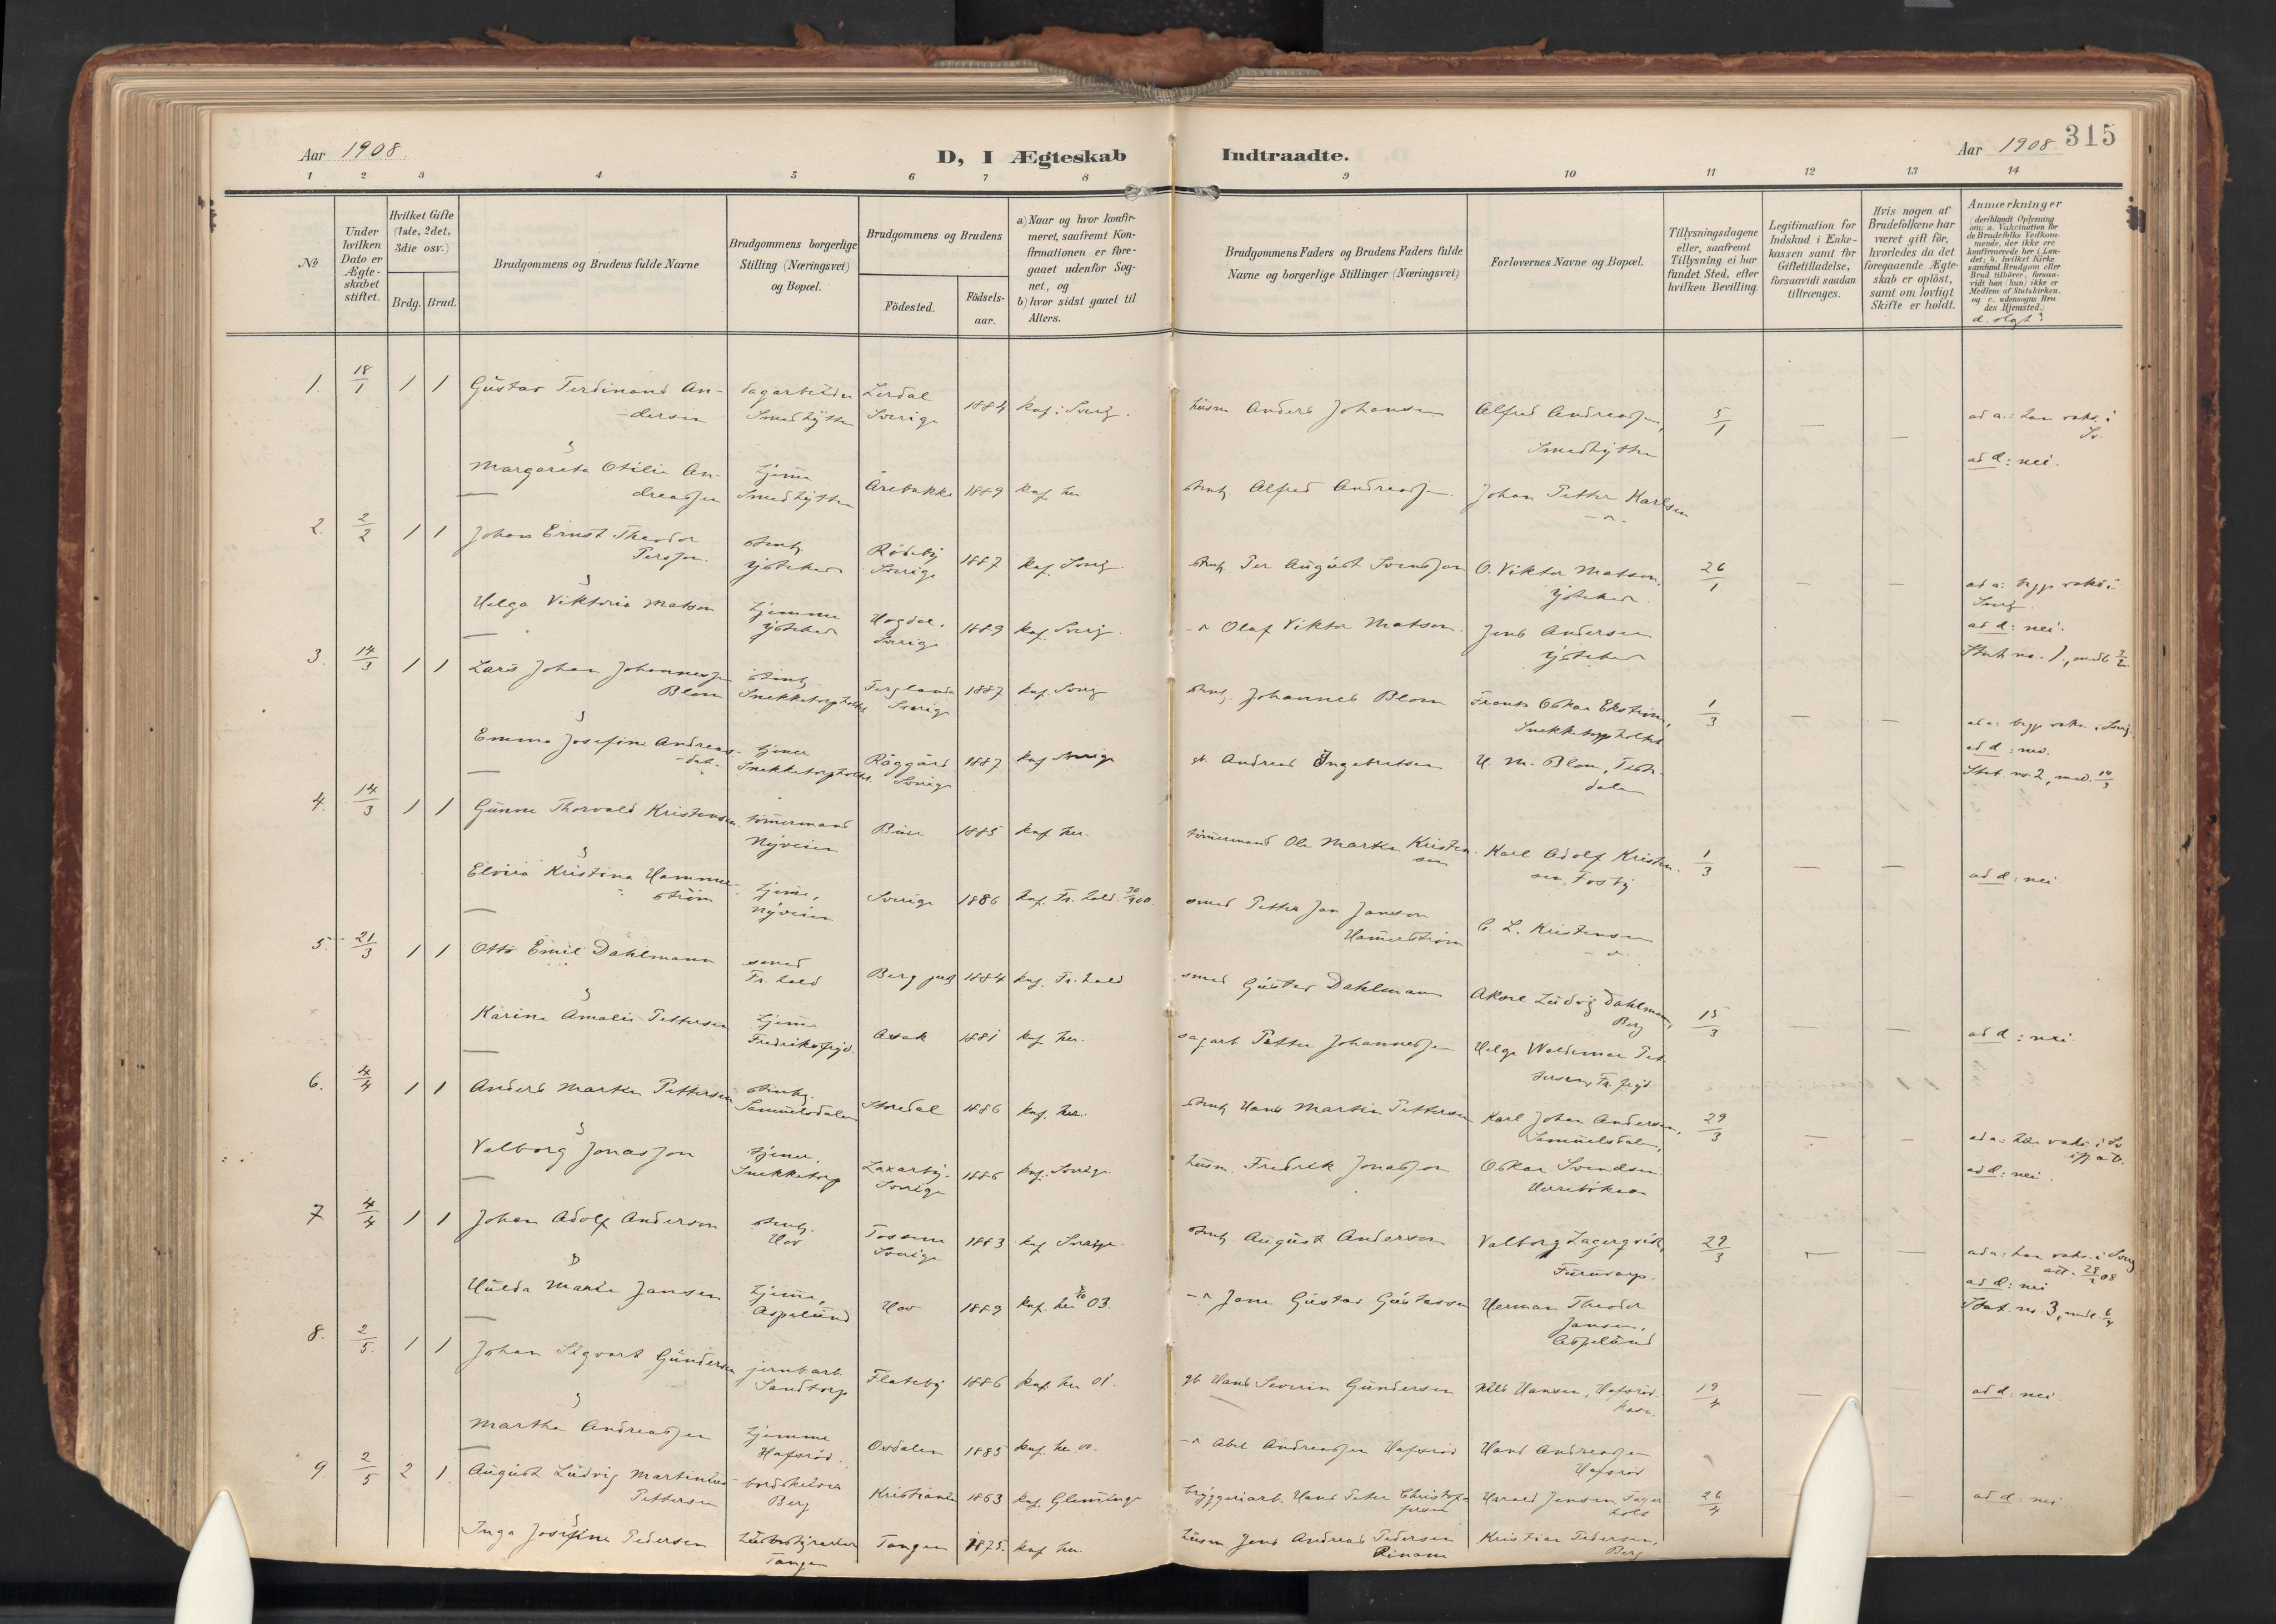 315
Aar 1908.
D, I Ægteskab Indtraadte.
Aar 1908.
1 2 3 4 5 6 7 8 9 10 11 12 13 14
No
Under hvilken Dato er Ægte-skabet stiftet.
Hvilket Gifte (1ste, 2det, 3die osv.)
Brdg. Brud.
Brudgommens og Brudens fulde Navne
Brudgommens borgerlige Stilling (Næringsvei) og Bopæl.
Brudgommens og Brudens
Fødested.
Fødsels-aar.
a) Naar og hvor konfir-meret, saafremt Kon-firmationen er fore-gaaet udenfor Sog-net, og
b) hvor sidst gaaet til Alters.
Brudgommens Faders og Brudens Faders fulde Navne og borgerlige Stillinger (Næringsvei)
Forlovernes Navne og Bopæl.
Tillysningsdagene eller, saafremt Tillysning ei har fundet Sted, efter hvilken Bevilling.
Legitimation for Indskud i Enke-kassen samt for Giftetilladelse, forsaavidt saadan tiltrænges.
Hvis nogen af Brudefolkene har været gift før, hvorledes da det foregaaende Ægte-skab er opløst, samt om lovligt Skifte er holdt.
Anmærkninger
(deriblandt Oplysning om: a. Vakcination for de Brudefolks Vedkom-mende, der ikke ere konfirmerede her i Lan-det; b. hvilket Kirke-samfund Brudgom eller Brud tilhører, forsaa-vidt han (hun) ikke er Medlem af Statskirken, og c. udensogns Bru-des Hjemsted.)
d. slgt?
1. 18/1 1 1 Gustav Ferdinand An-dersen
dagarbeider Smedhytten
Lerdal Sverige 1884 knf. i Sverig.
husm. Anders Johansen
Alfred Andreassen, Smedhytten
5/1 — —
ad a: han vaks. i Sv.
ad d: nei.
Margareta Otilie An-dreassen
hjemme Smedhytten
Arebakke 1889 knf. her
stenh. Alfred Andreassen.
Johan Petter Karlsen
2. 2/2 1 1 Johan Ernst Theodor Persson.
stenh.
Rödeby Sverige 1887 knf. Sverig.
stenh. Per August Svensson
O. Viktor Matson,
26/1 — —
ad a: begge vaks. i Sverig.
ad d: nei.
Helga Viktoria Matson
hjemme
Hogdal, Sverige 1889 knf. Sverig.
Olaf Viktor Matson.
Jens Andersen
Stat. no. 1,
3. 14/3 1 1 Lars Johan Johannessen Blom
stenh. Snekketorpholtet
Sverige 1887 knf. Sverig
stenh. Johannes Blom
Frants Oskar Ekström, Snekketorpholtet
1/3 — —
ad a: begge vaks. i Sverig.
ad d: nei.
Emma Josefine Andreas-dat.
tjener Snekketorpholtet.
Råggärd Sverige 1887 knf Sverige
Andreas Ingebretsen
H. M. Blom, Tistedalen
Stat. no. 2, med. 14/3
4. 14/3 1 1 Gunne Thorvald Kristensen
tömmermand Nyveien
1885 knf her.
tömmermand Ole Martin Kristensen
Karl Adolf Kristensen, Fosby
1/3 — —
ad d: nei
Elvira Kristina Hammerström
hjemme, Nyveien
Sverige 1886 knf. Fr.hald.
smed Petter Jan Janson Hamerström
C. L. Kristensen
5. 21/3 1 1 Otto Emil Dahlmann
smed Fr.hald
Berg 1884 knf. Fr.hald
smed Gustav Dahlmann
Aksel Ludvig Dahlmann, Berg
15/3 — —
ad d: nei.
Karine Amalie Pettersen
hjemme
Asak 1881 knf her.
Petter Johannessen
Helge Waldemar Pettersen,
6. 4/4 1 1 Anders Martin Pettersen
stenh. Samuelsdalen
Storedal 1886 knf. her.
stenh. Hans Martin Pettersen
Karl Johan Andersen, Samuelsdalen,
29/3 — —
ad d: nei.
Valborg Jonasson
tjener, Snekketorp
Laxarby, Sverige 1886 knf. Sverige
husm. Fredrik Jonasson
Oskar Svendsen
7 4/4 1 1 Johan Adolf Anderson
stenh. Hov
Tossene Sverige 1883 knf Sverige.
stenh. August Anderson
Valborg Lagerqvist, Furutorp.
29/3
ad a: han vaks. i Sverig
ad d: nei
Hulda Marie Jansen
hjemme, Aspelund
Hov 1889 knf. her 03
Jane Gustav Gustavson
Herman Theodor Jansen, Aspelund
Stat. no. 3,
8. 2/5. 1 1 Johan Sigvart Gundersen
jernbarb. Sandtorp
Flateby 1886 knf. her 01.
gb Hans Severin Gundersen
Nils Hansen, Hafsröd
19/4
ad d: nei
Martha Andreassen
hjemme Hafsröd.
Osdalen 1885 knf. her 00.
Abel Andreassen Hafsröd
Hans Andreassen Hafsröd
9. 2/5 2 1 August Ludvig Martinius Pettersen
bordskelver Berg
Kristiania 1863 knf. Glemminge
bryggeriarb. Hans Peter Christoffersen
Harald Jensen, Fagerholt
26/4
ad d: nei
Inga Josefine Pedersen
husbestyrerinde Tangen
Tangen 1875. knf her.
husm. Jens Andreas Pedersen
Kristian Pedersen, Berg